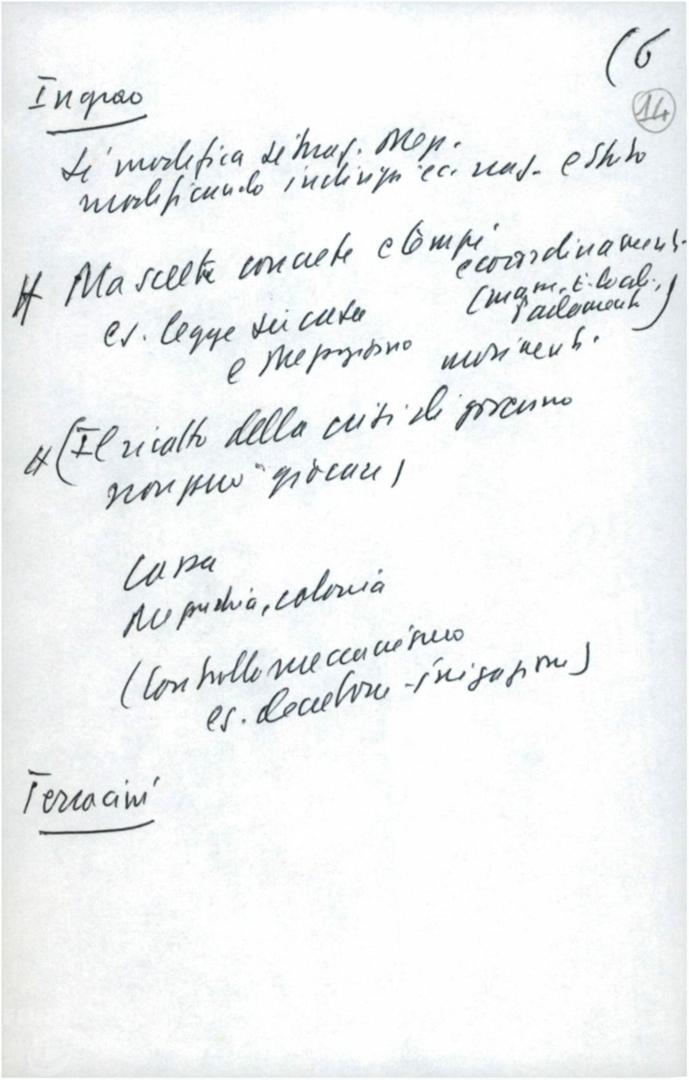 (6
14
Ingrao
Si modifica situaz. Mep.
modificando indirizzi ec. naz. e Stato
# Ma scelte concrete e tempi
e coordinament.
es. legge sui casa
(mam. E. locali,
Parlamento)
e Mezzogiorno
moviment.
# (Il ricatto della crisi di governo
non può giocare)
Cassa
colonia
(Controllo meccanismo
es. - irrigazione)
Terracini